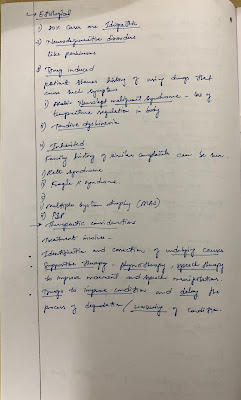 → Etiological
1) 20% cases are Idiopathic
2) Neurodegenerative disorders
like parkinsons
3) Drug induced
patient shares history of using drugs that
cause such symptoms.
1) Neurolept malignant syndrome - loss of
temperature regulation in body
2) Tardive dyskinesia
4) Inherited
Family history of similar complaints can be seen.
1) Rett syndrome
2) Fragile X syndrome.
5)
1) multiple system atrophy (MAS)
2) PSP
→ Therapeutic considerations
Treatment involve -
• Identification and correction of underlying causes
• Supportive therapy - physiotherapy, speech therapy
to improve movement and speech manifestations.
• Drugs to improve condition and delay the
process of degradation / worsening of condition.